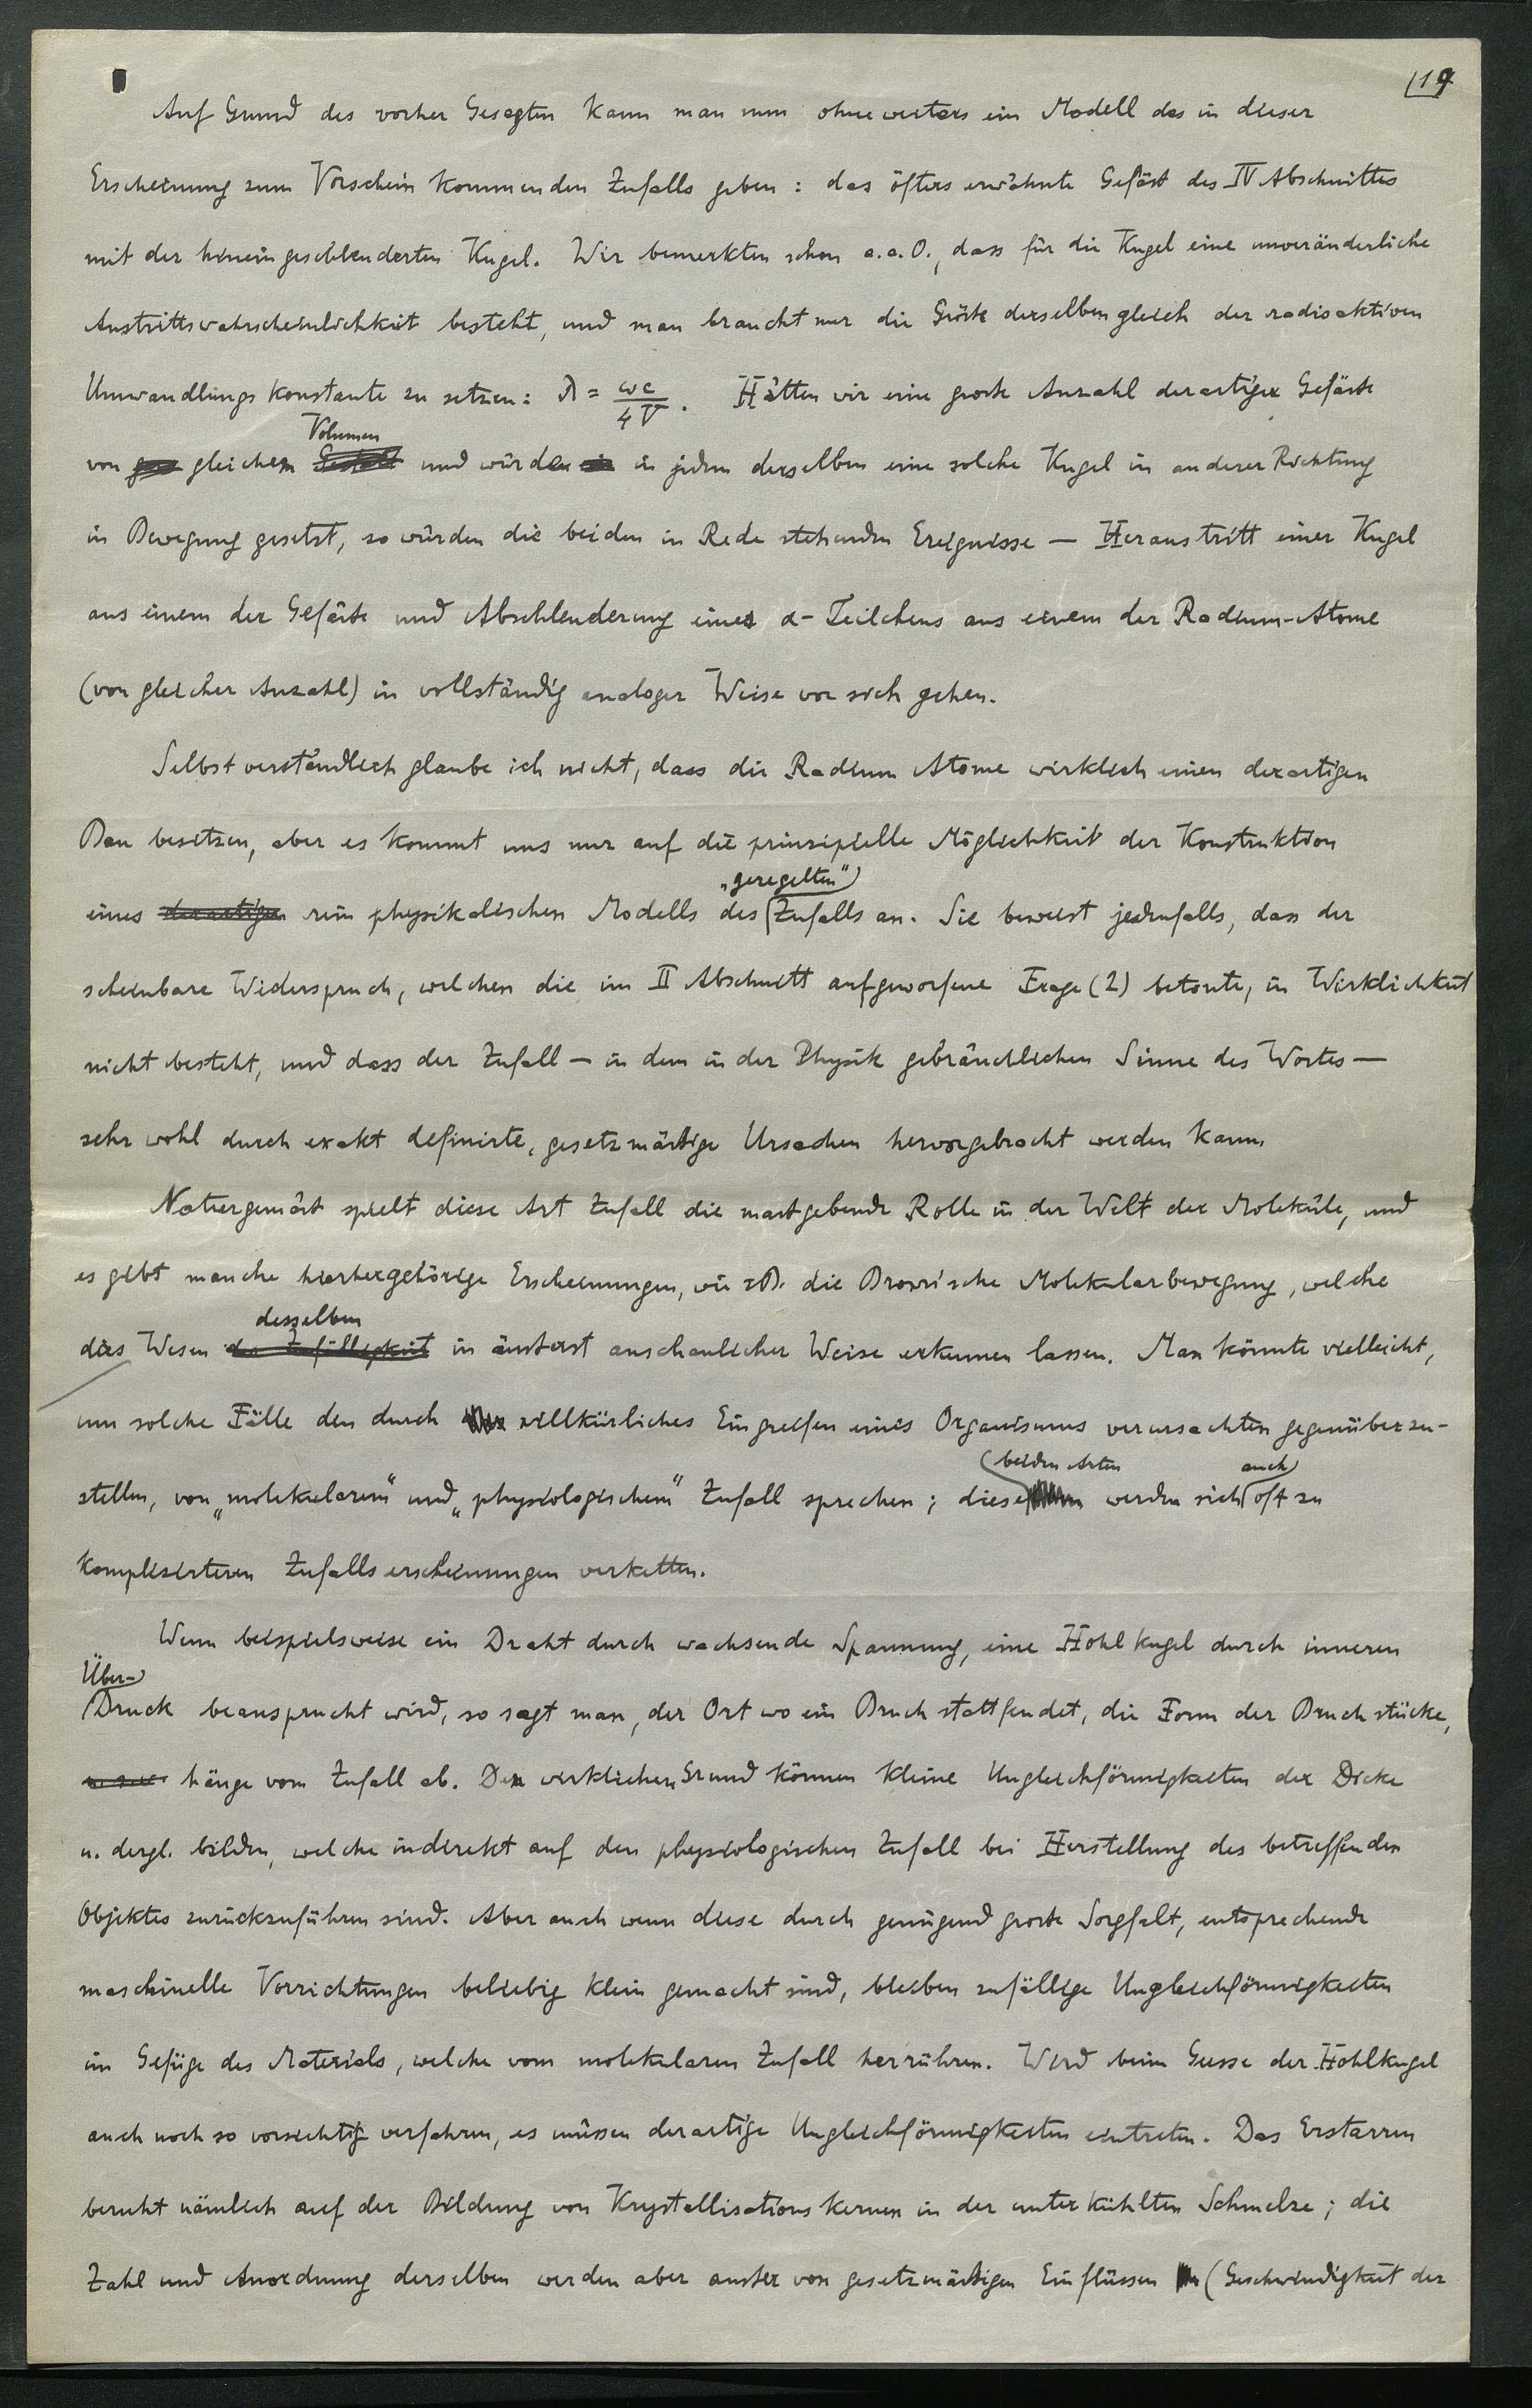 19
Auf Grund des vorher Gesagten kann man nun ohneweiters ein Modell des in dieser
Erscheinung zum Vorschein kommenden Zufalls geben: das öfters erwähnte Gefäß des IV Abschnittes
mit der hineingeschleuderten Kugel. Wir bemerkten schon a.a.O., dass für die Kugel eine unveränderliche
Austrittswahrscheinlichkeit besteht, und man braucht nur die Größe derselben gleich der radioaktiven
Umwandlungskonstante zu setzen: λ = ωc/4V. Hätten wir eine große Anzahl derartiger Gefäße
Volumen
von gleichem und würden in jedem derselben eine solche Kugel in anderer Richtung
in Bewegung gesetzt, so würden die beiden in Rede stehenden Ereignisse — Heraustritt einer Kugel
aus einem der Gefäße und Abschleuderung eines α-Teilchens aus einem der Radium-Atome
(von gleicher Anzahl) in vollständig analoger Weise vor sich gehen.
Selbstverständlich glaube ich nicht, dass die Radium Atome wirklich einen derartigen
Bau besitzen, aber es kommt uns nur auf die prinzipielle Möglichkeit der Konstruktion
„geregelten“
eines derartigen rein physikalischen Modells des Zufalls an. Sie beweist jedenfalls, dass der
scheinbare Widerspruch, welchen die im II Abschnitt aufgeworfene Frage (2) betonte, in Wirklichkeit
nicht besteht, und dass der Zufall — in dem in der Physik gebräuchlichen Sinne des Wortes —
sehr wohl durch exakt definirte, gesetzmäßige Ursachen hervorgebracht werden kann.
Naturgemäß spielt diese Art Zufall die maßgebende Rolle in der Welt der Moleküle, und
es gibt manche hierhergehörige Erscheinungen, wie zB. die Brownsche Molekularbewegung, welche
desselben
das Wesen der Zufälligkeit in äußerst anschaulicher Weise erkennen lassen. Man könnte vielleicht,
um solche Fälle den durch willkürliches Eingreifen eines Organismus verursachten gegenüberzu-
beiden Arten auch
stellen, von „molekularem“ und „physiologischem“ Zufall sprechen; diese werden sich oft zu
komplizirteren Zufallserscheinungen verketten.
Wenn beispielsweise ein Draht durch wachsende Spannung, eine Hohlkugel durch inneren
Über-
Druck beansprucht wird, so sagt man, der Ort wo ein Bruch stattfindet, die Form der Bruchstücke,
hänge vom Zufall ab. Den wirklichen Grund können kleine Ungleichförmigkeiten der Dicke
u. dergl. bilden, welche indirekt auf den physiologischen Zufall bei Herstellung des betreffenden
Objektes zurückzuführen sind. Aber auch wenn diese durch genügend große Sorgfalt, entsprechende
maschinelle Vorrichtungen beliebig klein gemacht sind, bleiben zufällige Ungleichförmigkeiten
im Gefüge des Materials, welche vom molekularen Zufall herrühren. Wird beim Gusse der Hohlkugel
auch noch so vorsichtig verfahren, es müssen derartige Ungleichförmigkeiten eintreten. Das Erstarren
beruht nämlich auf der Bildung von Krystallisationskernen in der unterkühlten Schmelze; die
Zahl und Anordnung derselben werden aber außer von gesetzmäßigen Einflüssen (Geschwindigkeit der